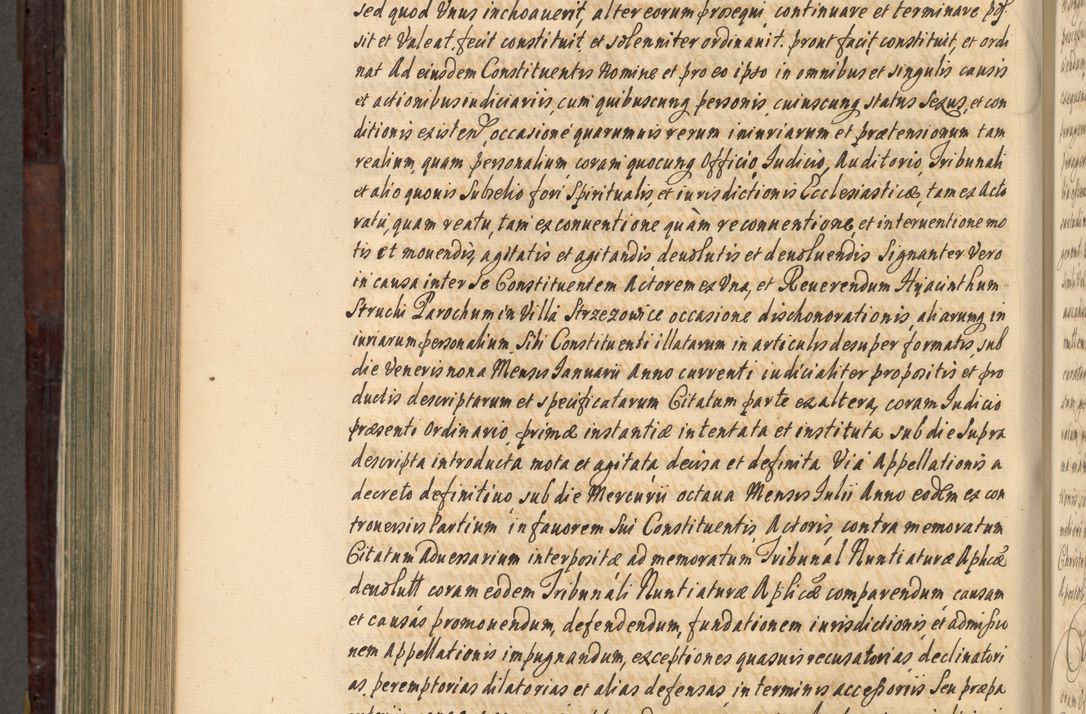 sed quod Vnus inchoauerit, alter eorum prosequi continuare et terminare pos
sit et Valeat, fecit constituit, et solenniter ordinauit. prout facit constituit, et ordi
nat Ad eiusdem Constituentis Nomine et pro eo ipso in omnibus et singulis causis
et actionibus iudiciariis, cum quibuscunq personis, cuiuscunq status Sexus, et con
ditionis existen, occasione quarumuis rerum iniuriarum et prætensionum tam
realium, quam personalium coram quocunq Officio, Iudicio, Auditorio, Tribunali
et alio quouis Subselio fori Spiritualis, et iurisdictionis Ecclesiasticæ, tam ex Acto
ratu, quam reatu, tam ex conuentione quàm reconuentione, et interuentione mo
tis et mouendis, agitatis et agitandis deuolutis et deuoluendis Signanter Vero
in causa inter Se Constituentem Actorem ex Vna, et Reuerendum Hyacinthum
Struchi Parochum in Villa Strzezowice occasione dischonorationis, aliarunq in
iuriarum personalium Sibi Constituenti illatarum in articulis desuper formatis, sub
die Veneris nona Mensis Ianuarii Anno currenti iudicialiter propositis et pro
ductis descriptarum et specificatarum Citatum parte ex altera, coram Iudicio
præsenti Ordinario, primæ instantiæ intentata et instituta sub die Supra
descripta introducta mota et agitata decisa et definita Via Appellationis a
decreto definitiuo sub die Mercurii octaua Mensis Iulii Anno eodem ex con
trouersiis Partium in fauorem Sui Constituentis, Actoris contra memoratum
Citatum Aduersarium interpositæ ad memoratum Tribunal Nuntiaturæ Aplicæ
deuolutt coram eodem Tribunali Nuntiaturæ Aplicæ comparendum causam
et causas promouendum, defendendum, fundationem iurisdictionis et admissio
nem Appellationis impugnandum, exceptiones quasuis recusatorias declinatori
as, peremptorias dilatorias et alias defensas in terminis accessoriis Seu præpa